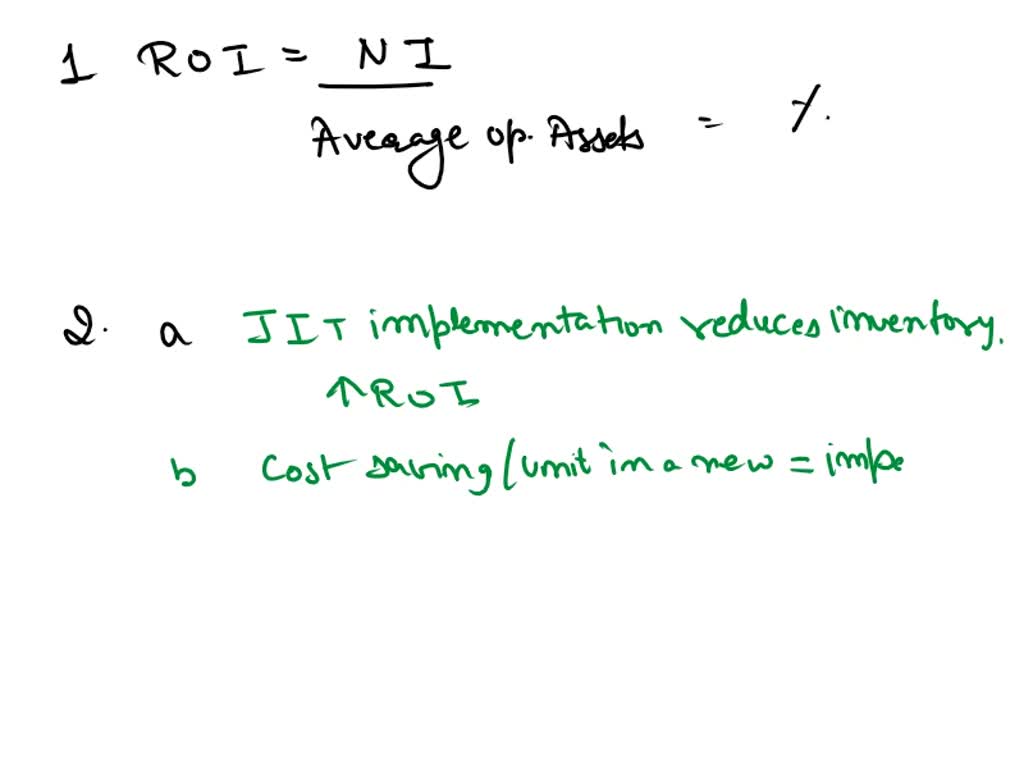 1 ROI = NI
Average op. Assets = %.
2. a JIT implementation reduces inventory.
↑ROI
b Cost saving/unit in a new = impe